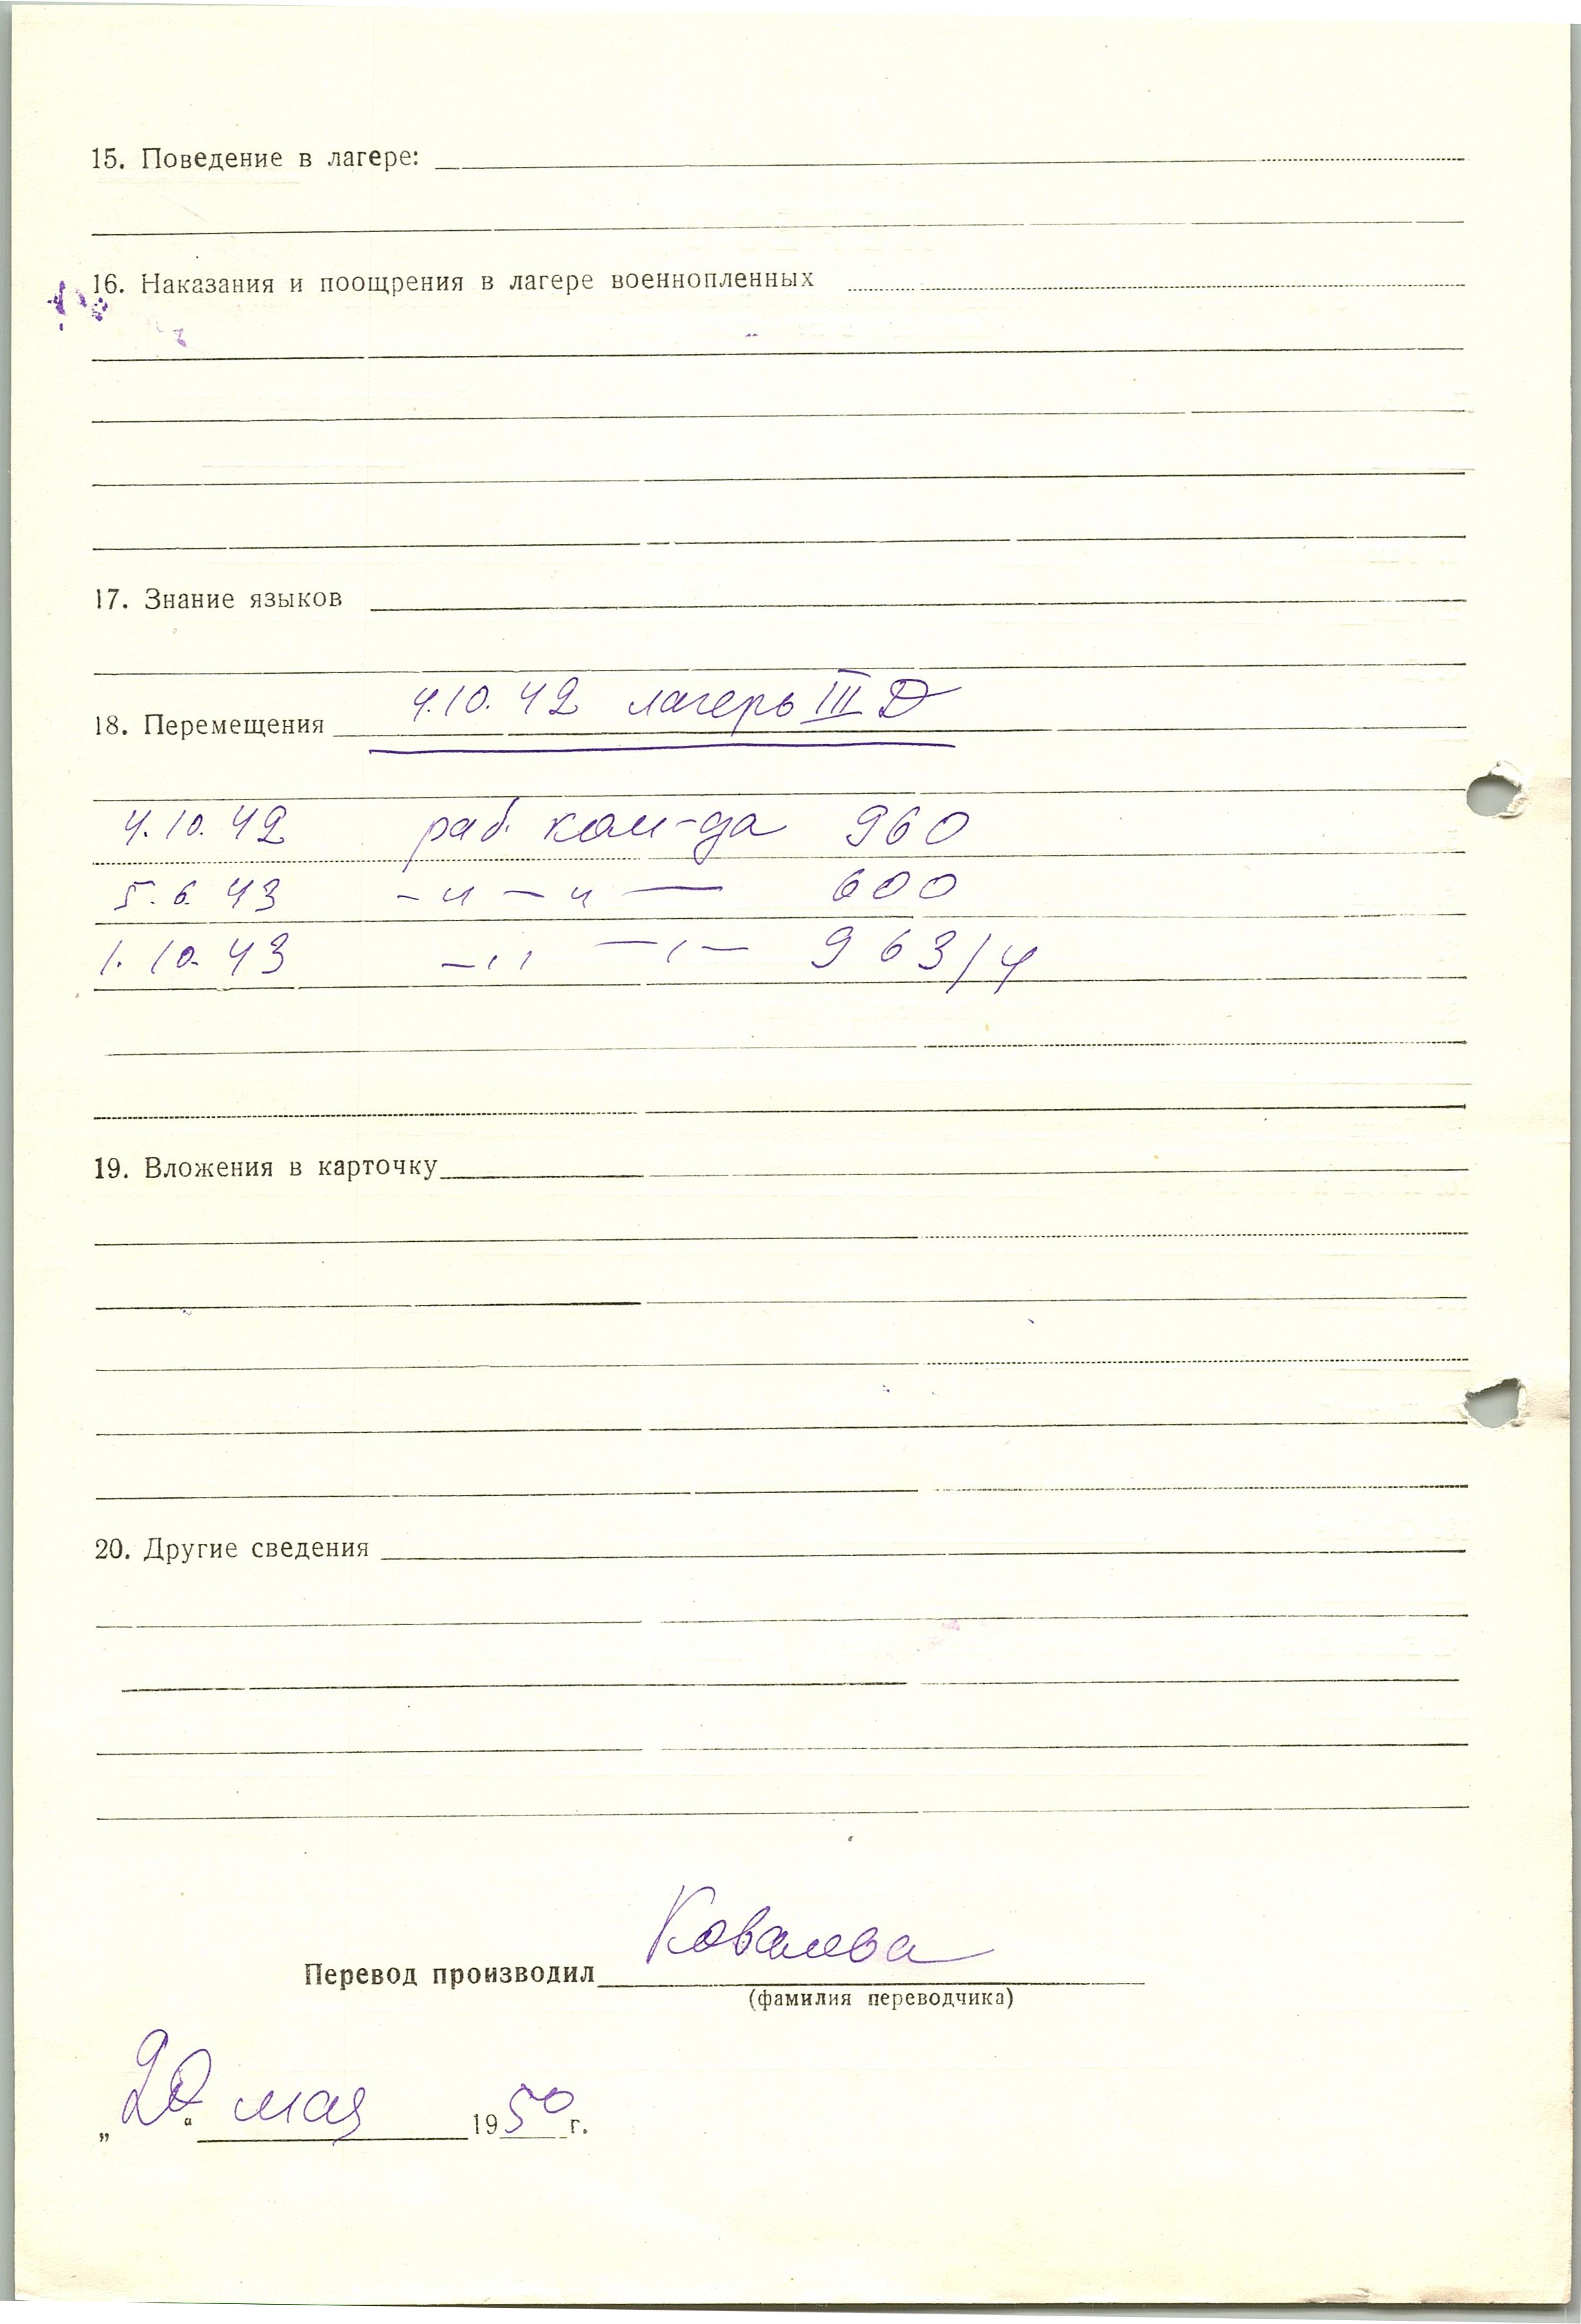 15. Поведение в лагере:
16. Наказания и поощрения в лагере военнопленных
17. Знание языков
18. Перемещения 4.10.42 лагерь III D
4.10.42 раб. ком-да 960
5.6.43 -"-"- 600
1.10.43 -"-"- 963/4
19. Вложения в карточку
20. Другие сведения
Перевод производил Ковалева
(фамилия переводчика)
„20“ мая 1950 г.